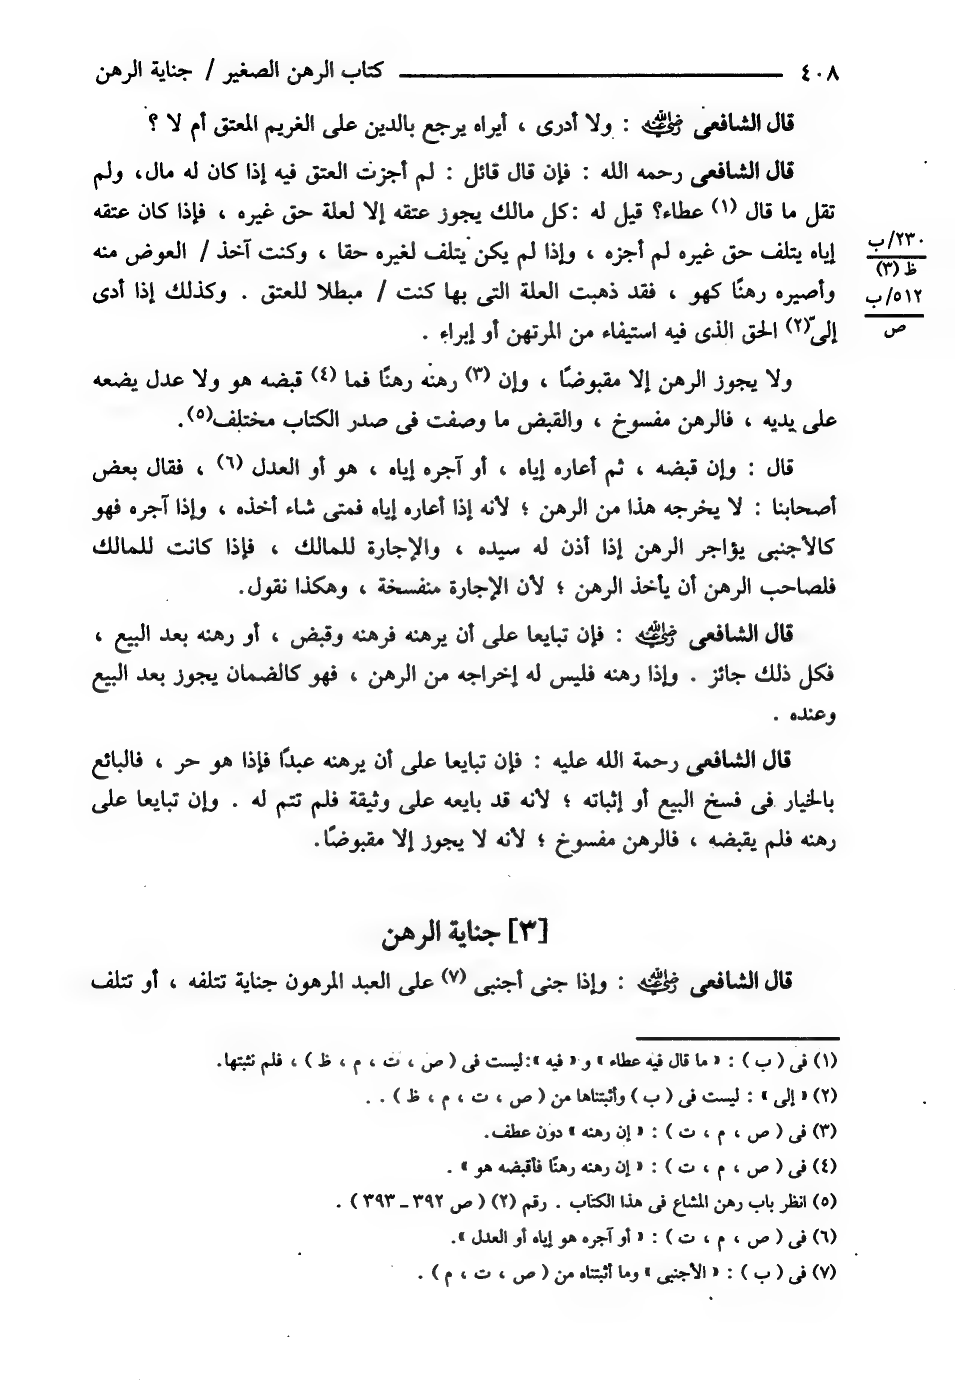 ٤٠٨ كتاب الرهن الصغير / جناية الرهن
قال الشافعى رضي الله عنه : ولا أدرى ، أيراه يرجع بالدين على الغريم المعتق أم لا ؟
قال الشافعى رحمه الله : فإن قال قائل : لم أجزت العتق فيه إذا كان له مال، ولم
تقل ما قال (١) عطاء؟ قيل له :كل مالك يجوز عتقه إلا لعلة حق غيره ، فإذا كان عتقه
إياه يتلف حق غيره لم أجزه ، وإذا لم يكن يتلف لغيره حقا ، وكنت آخذ / العوض منه
وأصيره رهنًا كهو ، فقد ذهبت العلة التى بها كنت / مبطلا للعتق . وكذلك إذا أدى
إلى(٢) الحق الذى فيه استيفاء من المرتهن أو إبراء .
٢٣٠/ب
ظ (٣)
٥١٢/ب
ص
ولا يجوز الرهن إلا مقبوضًا ، وإن (٣) رهنه رهنًا فما (٤) قبضه هو ولا عدل يضعه
على يديه ، فالرهن مفسوخ ، والقبض ما وصفت فى صدر الكتاب مختلف(٥).
قال : وإن قبضه ، ثم أعاره إياه ، أو آجره إياه ، هو أو العدل (٦) ، فقال بعض
أصحابنا : لا يخرجه هذا من الرهن ؛ لأنه إذا أعاره إياه فمتى شاء أخذه ، وإذا آجره فهو
كالأجنبى يؤاجر الرهن إذا أذن له سيده ، والإجارة للمالك ، فإذا كانت للمالك
فلصاحب الرهن أن يأخذ الرهن ؛ لأن الإجارة منفسخة ، وهكذا نقول.
قال الشافعى رضي الله عنه : فإن تبايعا على أن يرهنه فرهنه وقبض ، أو رهنه بعد البيع ،
فكل ذلك جائز . وإذا رهنه فليس له إخراجه من الرهن ، فهو كالضمان يجوز بعد البيع
وعنده .
قال الشافعى رحمة الله عليه : فإن تبايعا على أن يرهنه عبدًا فإذا هو حر ، فالبائع
بالخيار فى فسخ البيع أو إثباته ؛ لأنه قد بايعه على وثيقة فلم تتم له . وإن تبايعا على
رهنه فلم يقبضه ، فالرهن مفسوخ ؛ لأنه لا يجوز إلا مقبوضًا.
[٣] جناية الرهن
قال الشافعى رضي الله عنه : وإذا جنى أجنبى (٧) على العبد المرهون جناية تتلفه ، أو تتلف
(١) فى ( ب ) : « ما قال فيه عطاء » و « فيه »:ليست فى ( ص ، ت ، م ، ظ ) ، فلم نثبتها.
(٢) « إلى » : ليست فى ( ب ) وأثبتناها من ( ص ، ت ، م ، ظ ) . .
(٣) فى ( ص ، م ، ت ) : « إن رهنه » دون عطف.
(٤) فى ( ص ، م ، ت ) : « إن رهنه رهنًا فأقبضه هو » .
(٥) انظر باب رهن المشاع فى هذا الكتاب . رقم (٢) ( ص ٣٩٢ ـ ٣٩٣ ) .
(٦) فى ( ص ، م ، ت ) : « أو آجره هو إياه أو العدل ».
(٧) فى ( ب ) : « الأجنبى » وما أثبتناه من ( ص ، ت ، م ) .